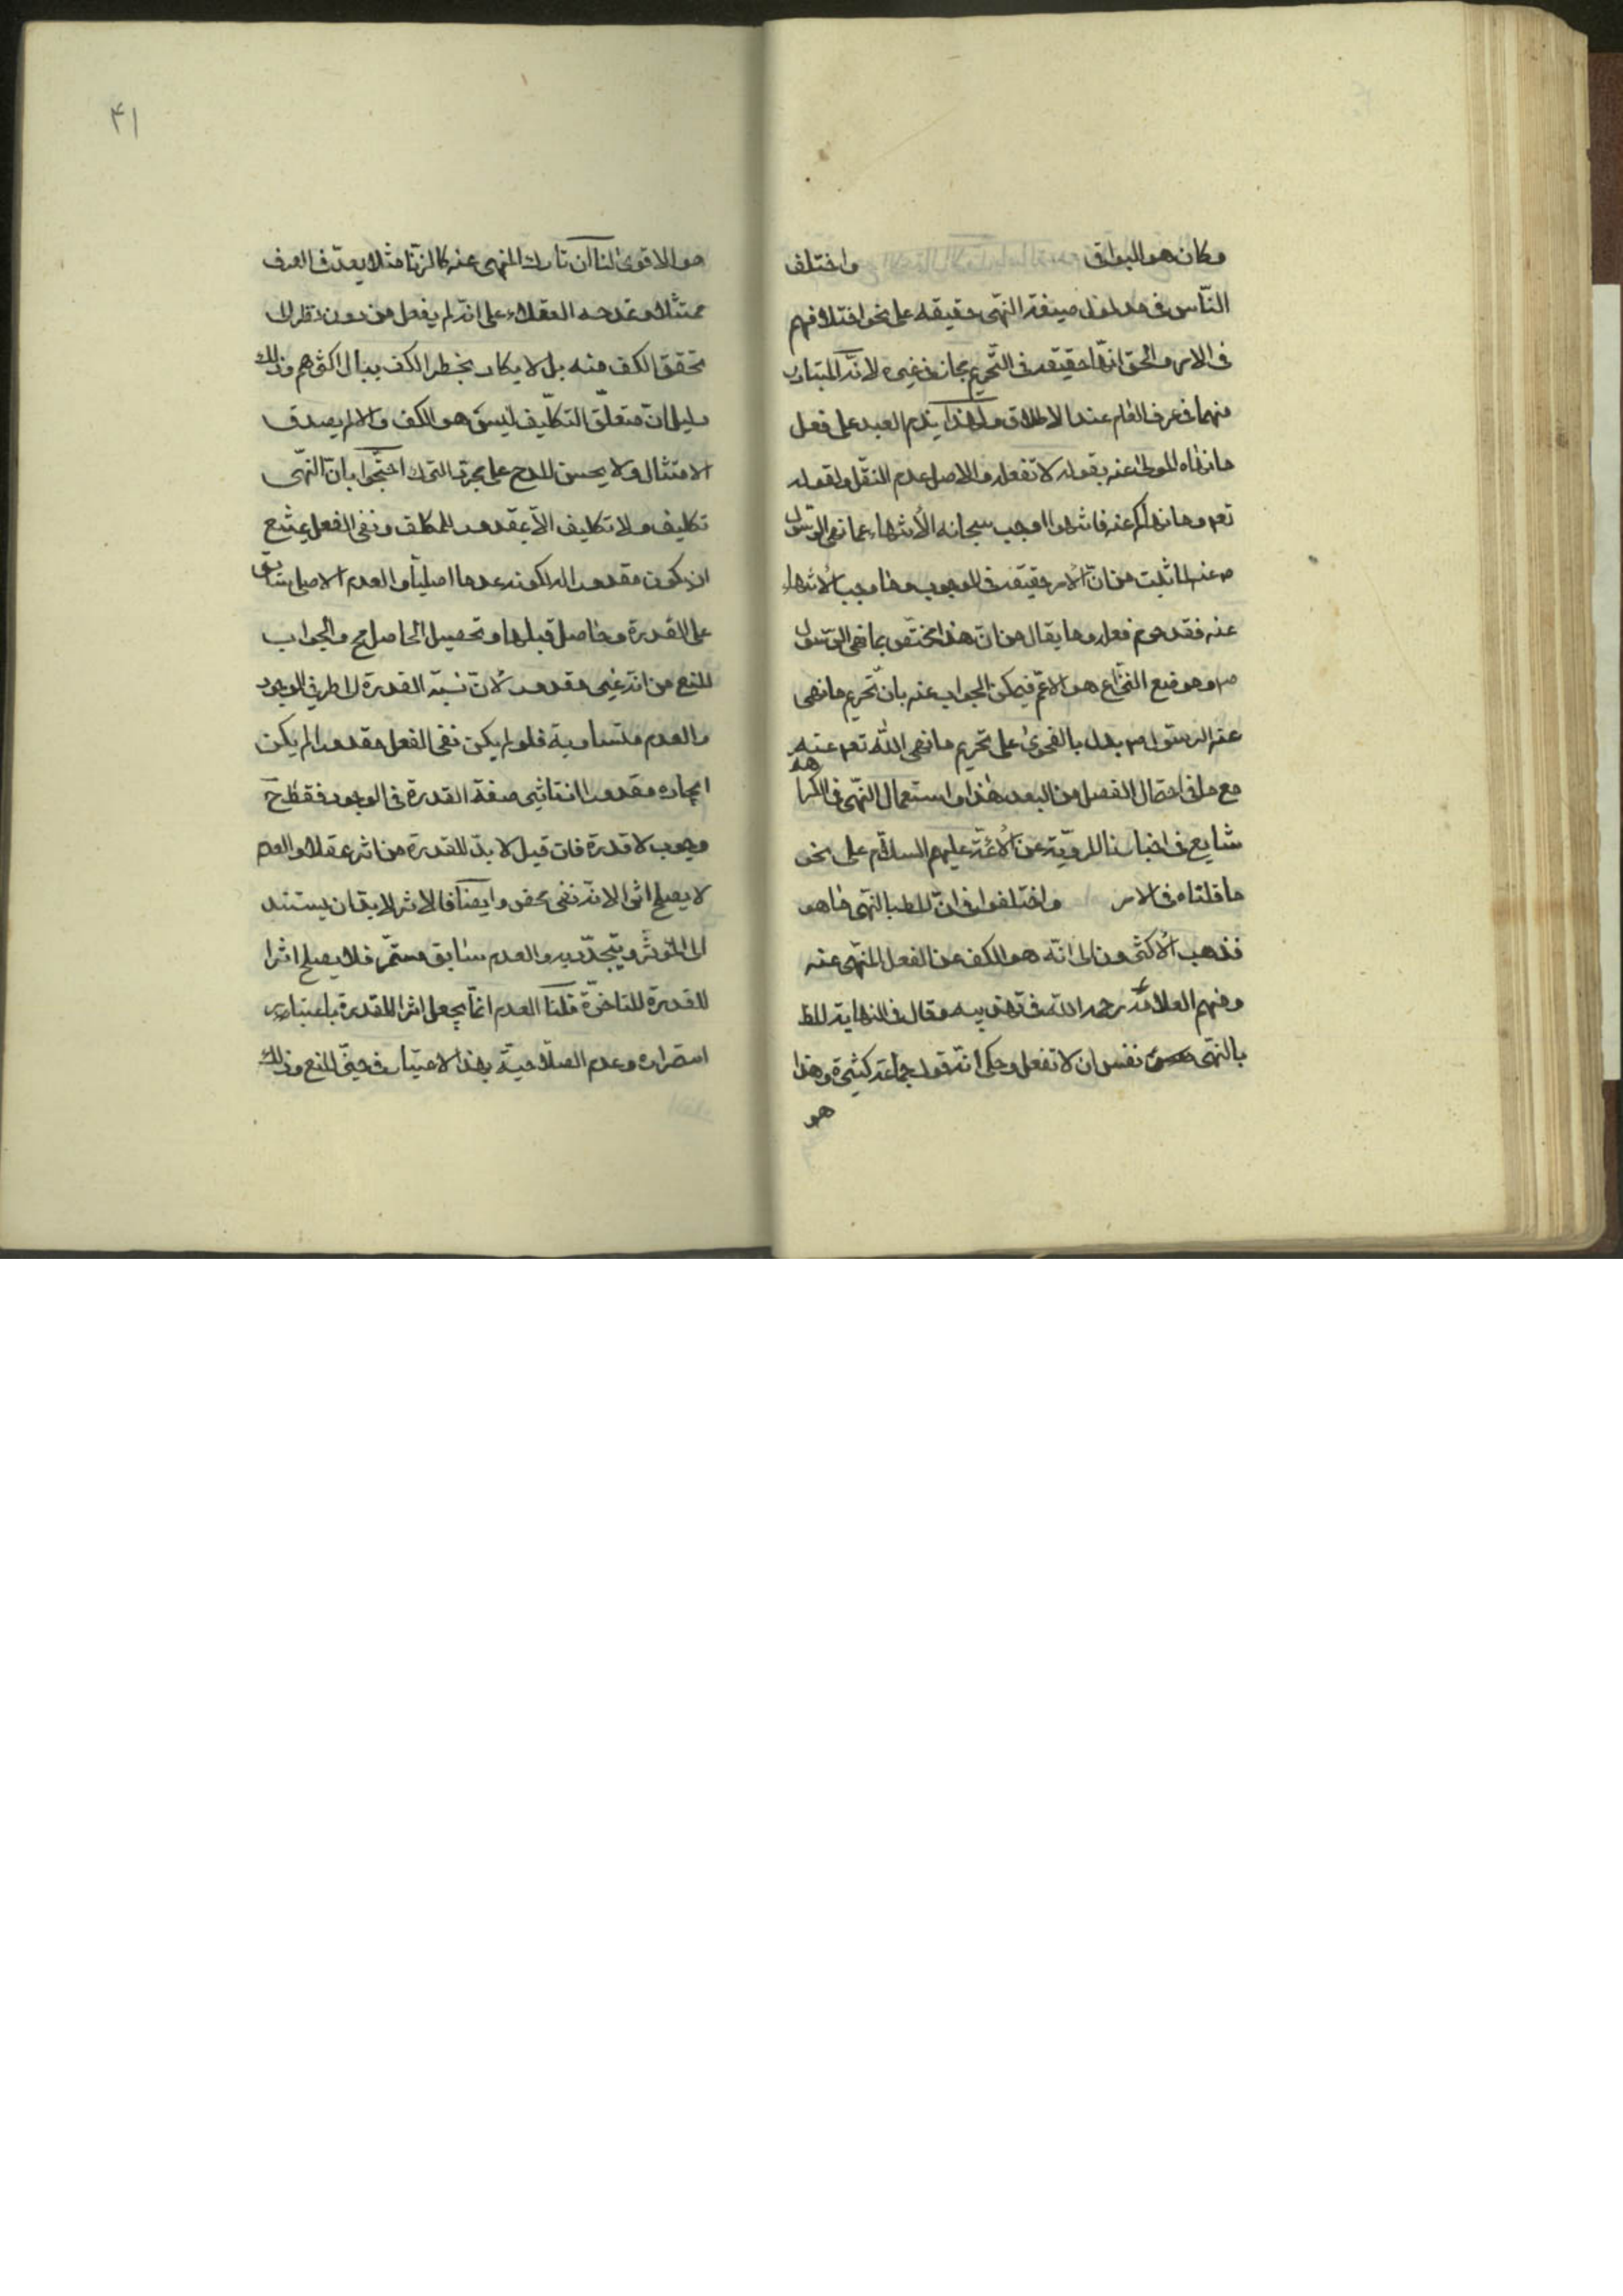 وكان هو البواقى واختلف
النّاس فى مدلول صيغة النّهى حقيقة على نحو اختلافهم
فى الامر والحق انّها حقيقة فى التّحريم مجاز فى غيره لانّه المتبادر
منها فى عرف العام عند الاطلاق ولهذا يذم العبد على فعل
ما نهاه المولى عنه بقوله لا تفعله والاصل عدم النقل ولقوله
تعم وما نهاكم عنه فانتهوا اوجب سبحانه الانتهاء عما نهى الرّسول
ص عنه لما ثبت من انّ الامر حقيقة فى الوجوب وما وجب الانتهاء
عنه فقد حرم فعله وما يقال من انّ هذا مختصّ بما نهى الرّسول
ص وموضع النّزاع هو الاعمّ فيمكن الجواب عنه بانّ تحريم ما نهى
عنه الرسول ص يدل بالفحوى على تحريم ما نهى اللّه تعم عنه
مع ما فى احتمال الفصل من البعد هذا واستعمال النّهى فى الكراهة
شايع فى اخبارنا المرويّة عن الائمّة عليهم السلام على نحو
ما قلناه فى الامر واختلفوا فى انّ المط بالنّهى ما هو
فذهب الاكثرون الى انّه هو الكف عن الفعل المنهى عنه
ومنهم العلامة رحمه اللّه فى تهذيبه وقال فى النهاية المط
بالنّهى نفس ان لا تفعل وحكى انّه قول جماعة كثيرة وهذا
هو
۴۱
هو الاقوى لنا ان تارك المنهى عنه كالزنا مثلا يعدّ فى العرف
ممتثلا ويمدحه العقلاء على انّه لم يفعل من دون نظر الى
تحقق الكف منه بل لا يكاد يخطر الكف ببال اكثرهم وذلك
دليل انّ متعلّق التكليف ليس هو الكف والا لم يصدق
الامتثال ولا يحسن المدح على مجرّد الترك احتجّوا بانّ النّهى
تكليف ولا تكليف الاّ بمقدور للمكلف ونفى الفعل يمتنع
ان يكون مقدورا له لكونه عدما اصليّا والعدم الاصلى سابق
على القدرة وحاصل قبلها وتحصيل الحاصل مح والجواب
المنع من انّه غير مقدور لانّ نسبة القدرة الى طرفى الوجود
والعدم متساوية فلو لم يكن نفى الفعل مقدورا لم يكن
ايجاده مقدورا اذ تاثير صفة القدرة فى الوجود فقط ح
وجوب لا قدرة فان قيل لا بدّ للقدرة من اثر عقلا والعدم
لا يصلح اثرا لانّه نفى محض وايضا فالاثر لابدّ ان يستند
الى المؤثّر ويتجدّد به والعدم سابق مستمّر فلا يصلح اثرا
للقدرة المتاخرّة قلنا العدم انّما يجعل اثرا للقدرة باعتبار
استمراره وعدم الصلاحيّة بهذا الاعتبار فى حيّز المنع وذلك